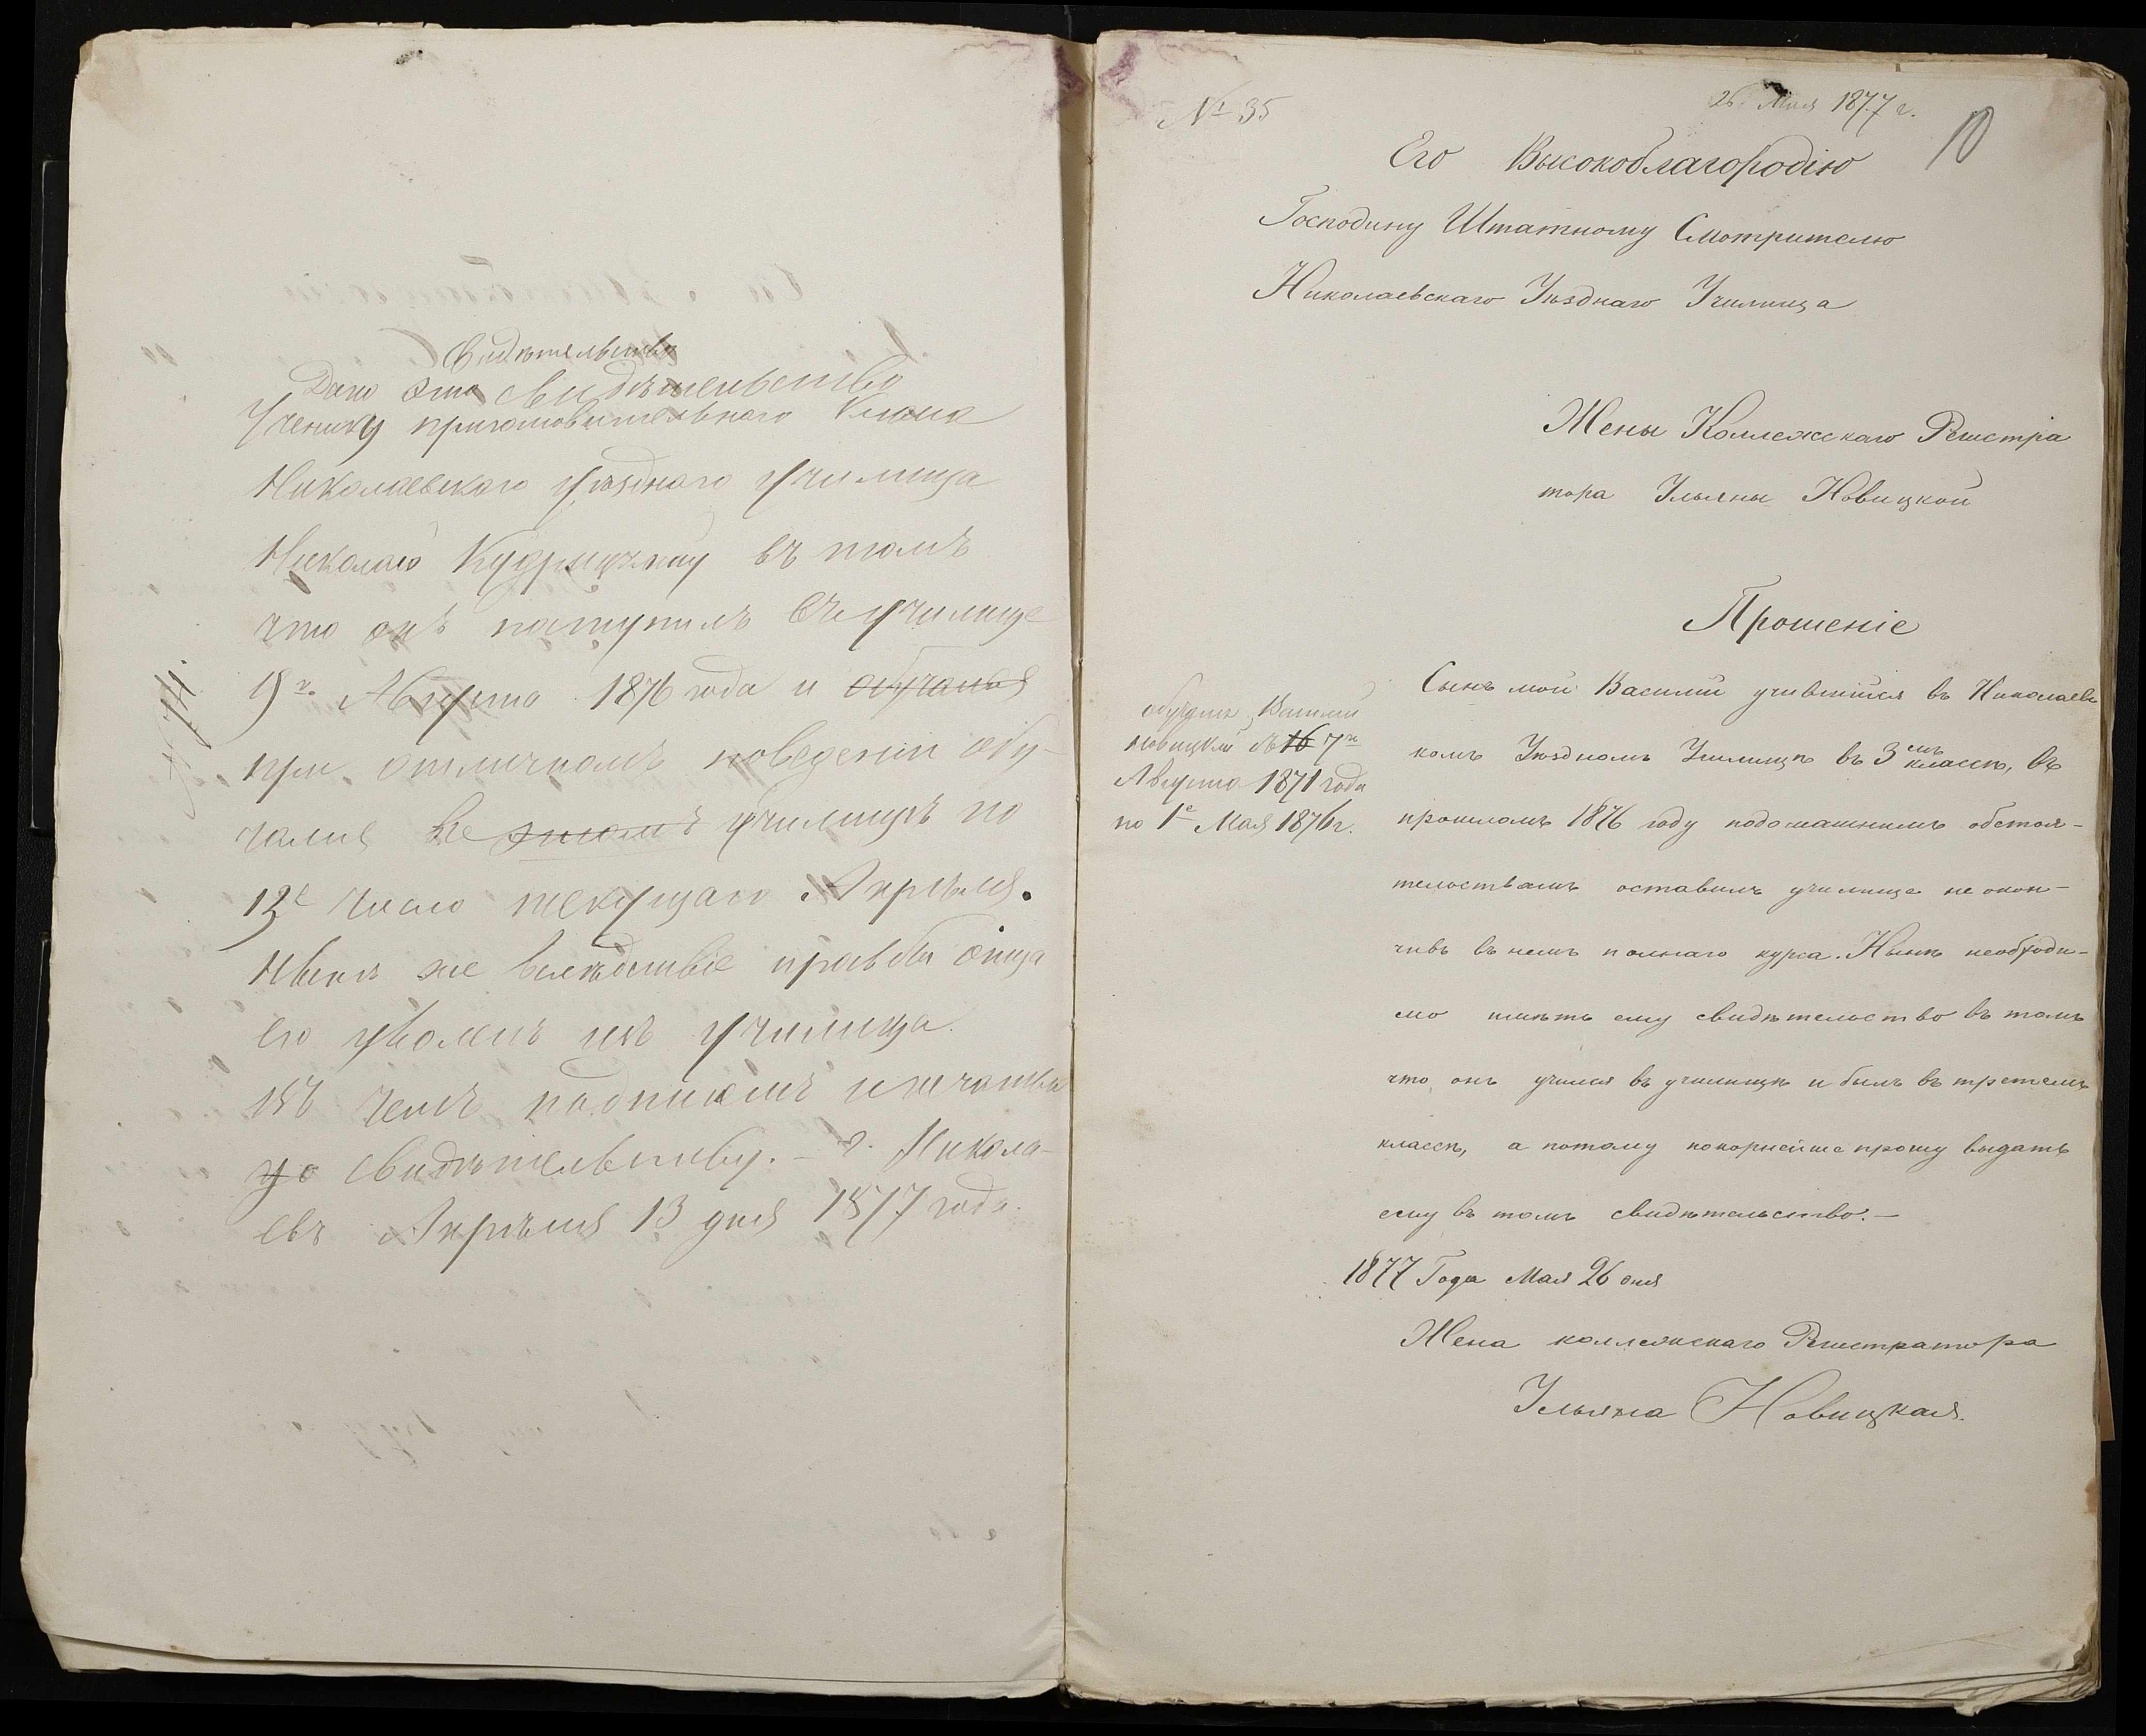 Свидѣтельство
Дано это свидѣтельство
Ученику приготовительнаго класса
Николаевскаго уѣзднаго училища
Николаю въ томъ
что онъ поступилъ въ училище
9го Августа 1876 года и обучался
при отличномъ поведеніи обу-
чался въ этомъ училищѣ по
13е число текущаго Апрѣля.
Нынѣ же вслѣдствіе просьбы отца
его уволенъ изъ училища.
въ чемъ подписомъ и печатью
свидѣтельствую. – г. Никола-
евъ Апрѣля 13 дня 1877 года.
№ 35
26 Мая 1877 г.
10
Его Высокоблагородію
Господину Штатному Смотрителю
Николаевскаго Уѣзднаго Училища
Жены Коллежскаго Регистра
тора Ульяны Новицкой
Прошеніе
Сынъ мой Василий учившійся въ Николаевс
комъ Уѣздномъ Училищѣ въ 3емъ классѣ, въ
прошломъ 1876 году подомашнимъ обстоя-
тельствамъ оставилъ училище не окон-
чивъ въ немъ полнаго курса. Нынѣ необходи-
мо имѣть ему свидѣтельство въ томъ
что онъ учился въ училищѣ и былъ въ третемъ
классѣ, а потому покорнейше прошу выдать
ему въ томъ свидѣтельство. –
1877 Года Мая 26 дня
Жена коллежскаго Регистратора
Ульяна Новицкая.
обучался Василий
Новицкій съ 16 7го
Августа 1871 года
по 1е Мая 1876 г.